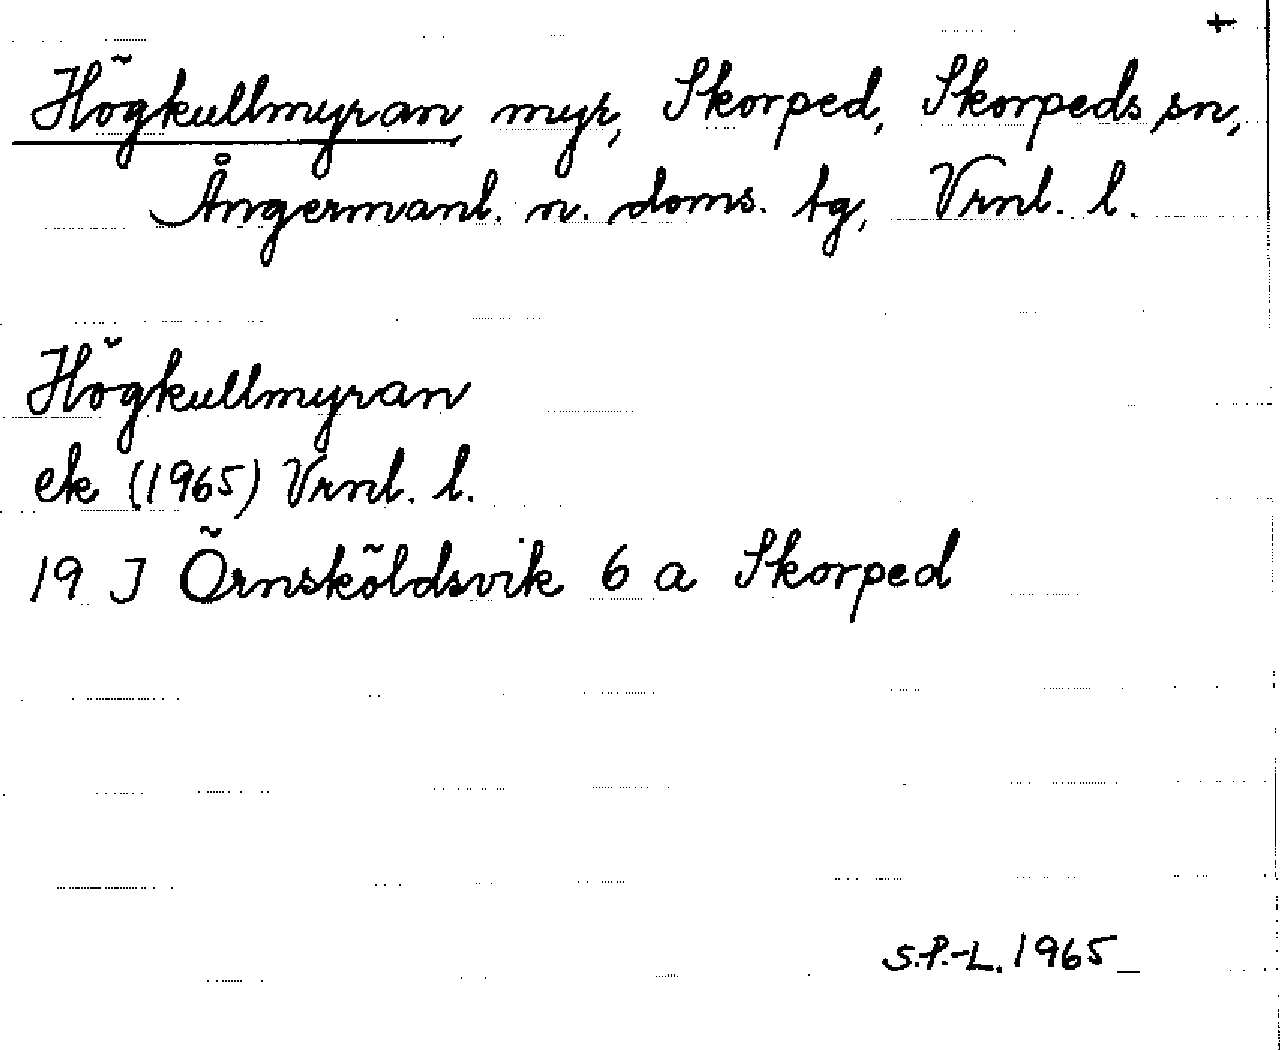 +
Högkullmyran, myr, Skorped, Skorpeds sn,
Ångermanl. n. doms. tg, Vrnl. l.
Högkullmyran
ek (1965) Vrnl. l.
19 J Örnsköldsvik 6 a Skorped
S.P.-L. 1965